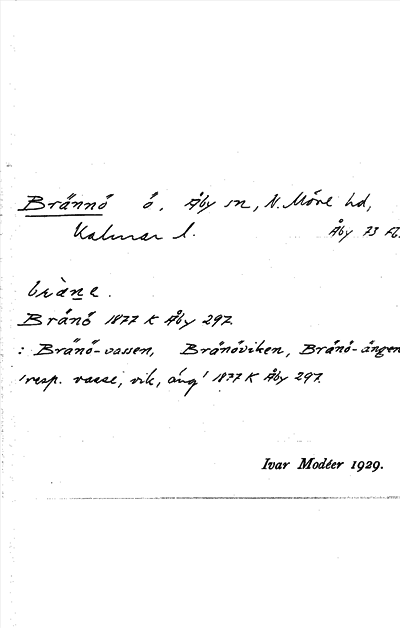 Brännö ö, Åby sn, N. Möre hd,
Kalmar l. Åby 73 A.
bràne.
Bränö 1877 K Åby 297
: Bränö-vassen, Bränöviken, Bränö-ängen
'resp. vasse, vik, äng' 1877 K Åby 297.
Ivar Modéer 1929.